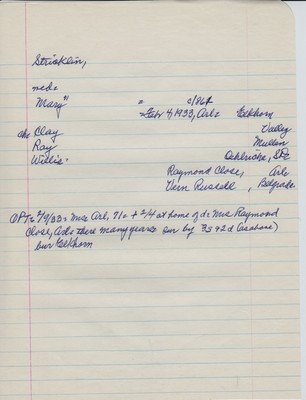 Stricklin,
med=
Mary" = c/864
=Febr 4, 1933, Arl= Elkhorn
chs Clay Valley
Ray Mullen
Willis Oelrichs, SD
Raymond Close, Arl
Vern Russell, Belgrade
APT= 2/9/33= Mrs Arl, 71= + 2/4 at home of d= Mrs Raymond
Close, Arl= there many years sur by 3s & 2d (as above)
bur Elkhorn